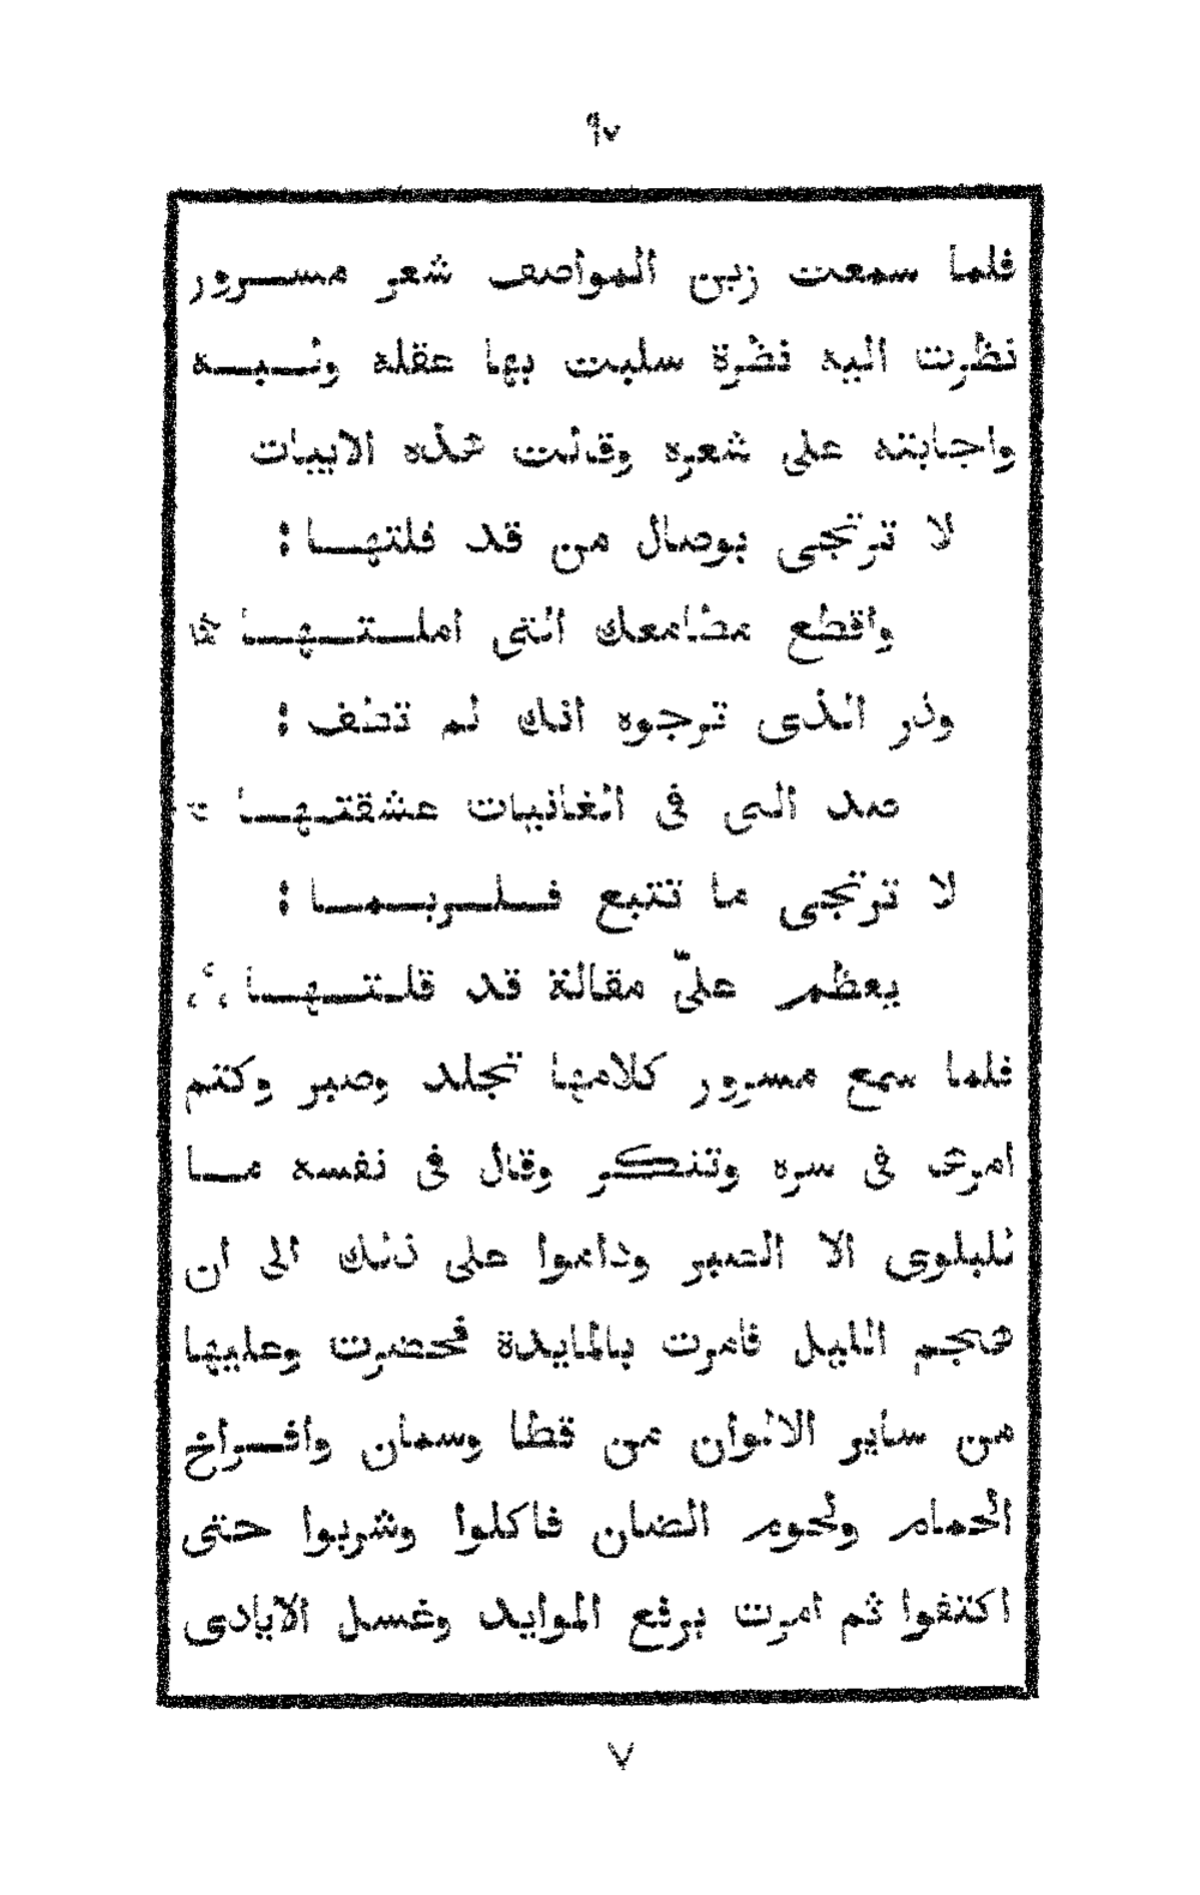 ٩٧
فلما سمعت زين المواصف شعر مسرور
نظرت اليه نظرة سلبت بها عقله ولبه
واجابته على شعره وقالت هذه الابيات
لا ترتجى بوصال من قد فلتها :
واقطع مطامعك التى املتها
وذر الذى ترجوه انك لم تطف :
صد التى فى الغانيات عشقتها
لا ترتجى ما تتبع فلربما :
يعظم علىّ مقالة قد قلتها
فلما سمع مسرور كلامها تجلد وصبر وكتم
امره فى سره وتنكر وقال فى نفسه ما
للبلوى الا الصبر وداموا على ذلك الى ان
هجم الليل فامرت بالمايدة فحضرت وعليها
من ساير الالوان من قطا وسمان وافراخ
الحمام ولحوم الضان فاكلوا وشربوا حتى
اكتفوا ثم امرت برفع الموايد وغسل الايادى
٧